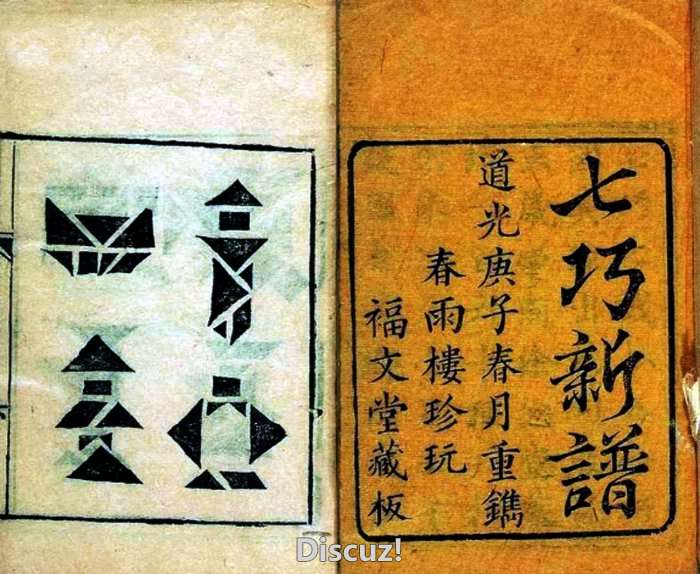 七巧新譜
道光庚子春月重鐫
春雨樓珍玩
福文堂藏板
Discuz!